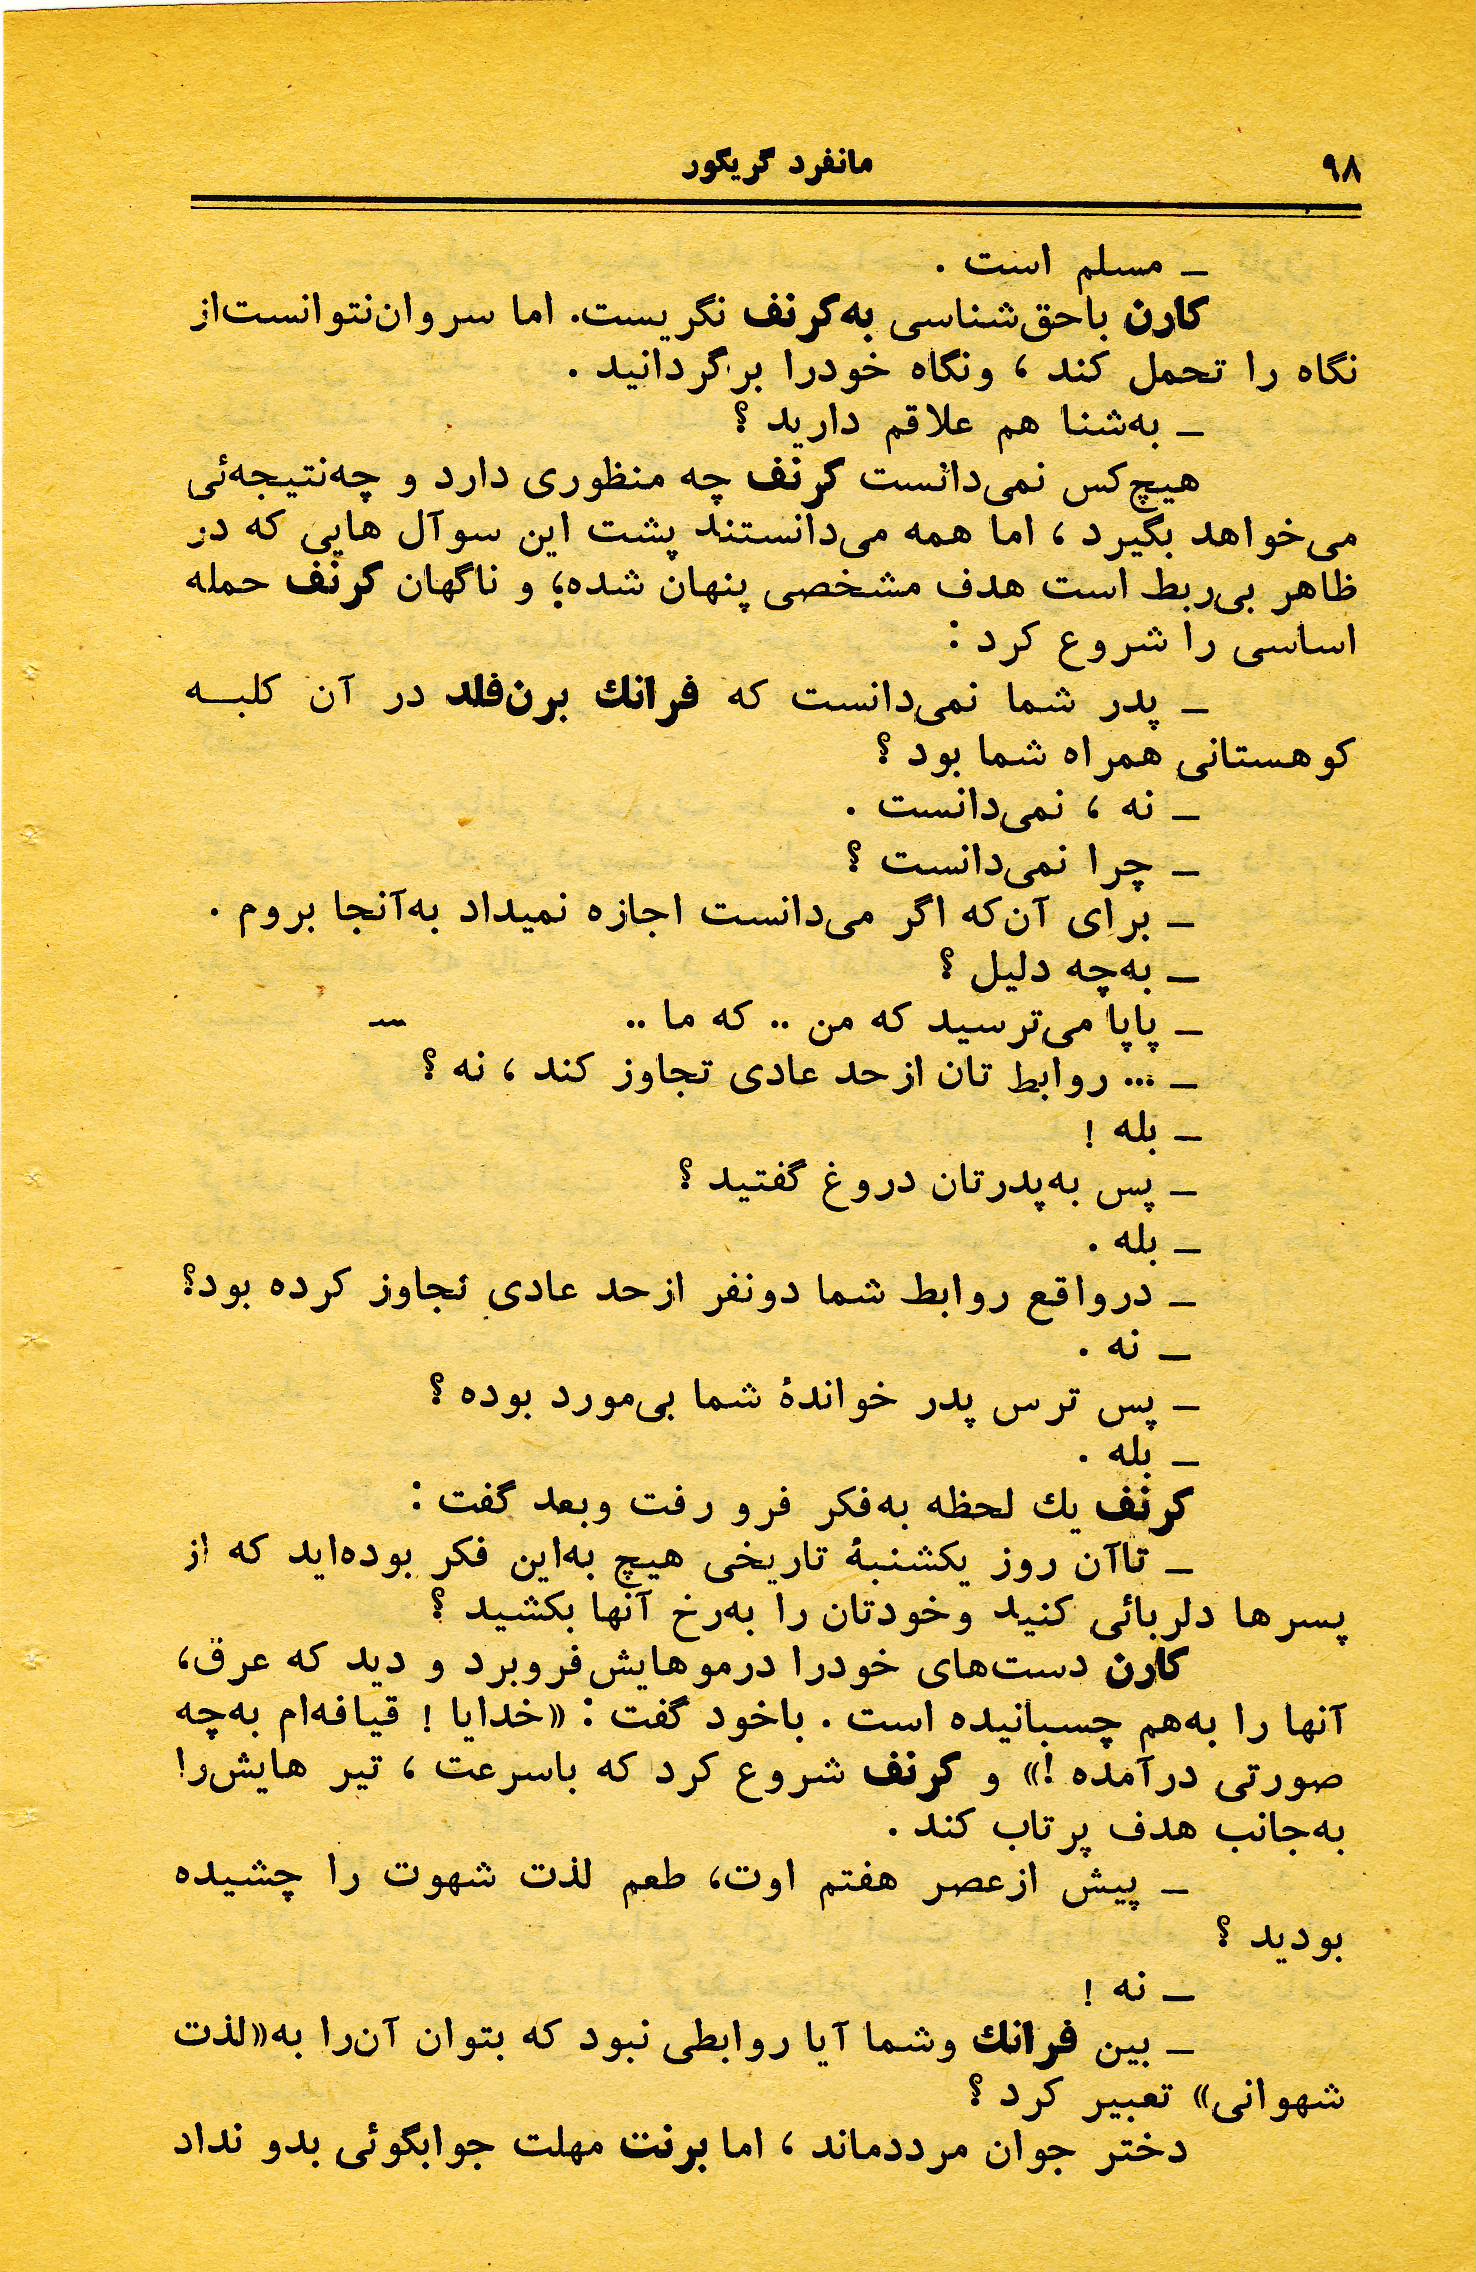 ۹۸
مانفرد گریگور
ـ مسلم است .
کارن باحق‌شناسی به‌کرنف نگریست. اما سروان‌نتوانست‌از
نگاه را تحمل کند ، ونگاه خودرا برگردانید .
ـ به‌شنا هم علاقم دارید ؟
هیچ‌کس نمی‌دانست کرنف چه منظوری دارد و چه‌نتیجه‌ئی
می‌خواهد بگیرد ، اما همه می‌دانستند پشت این سوآل هایی که در
ظاهر بی‌ربط است هدف مشخصی پنهان شده؛ و ناگهان کرنف حمله
اساسی را شروع کرد :
ـ پدر شما نمی‌دانست که فرانك برن‌فلد در آن کلبـه
کوهستانی همراه شما بود ؟
ـ نه ، نمی‌دانست .
ـ چرا نمی‌دانست ؟
ـ برای آن‌که اگر می‌دانست اجازه نمیداد به‌آنجا بروم .
ـ به‌چه دلیل ؟
ـ پاپا می‌ترسید که من .. که ما ..
ـ ... روابط تان ازحد عادی تجاوز کند ، نه ؟
ـ بله !
ـ پس به‌پدرتان دروغ گفتید ؟
ـ بله .
ـ درواقع روابط شما دونفر ازحد عادی تجاوز کرده بود؟
ـ نه .
ـ پس ترس پدر خواندهٔ شما بی‌مورد بوده ؟
ـ بله .
کرنف یك لحظه به‌فکر فرو رفت وبعد گفت :
ـ تاآن روز یکشنبهٔ تاریخی هیچ به‌این فکر بوده‌اید که از
پسرها دلربائی کنید وخودتان را به‌رخ آنها بکشید ؟
کارن دست‌های خودرا درموهایش‌فروبرد و دید که عرق،
آنها را به‌هم چسبانیده است . باخود گفت : «خدایا ! قیافه‌ام به‌چه
صورتی درآمده !» و کرنف شروع کرد که باسرعت ، تیر هایش‌را
به‌جانب هدف پرتاب کند .
ـ پیش ازعصر هفتم اوت، طعم لذت شهوت را چشیده
بودید ؟
ـ نه !
ـ بین فرانك وشما آیا روابطی نبود که بتوان آن‌را به«لذت
شهوانی» تعبیر کرد ؟
دختر جوان مرددماند ، اما برنت مهلت جوابگوئی بدو نداد